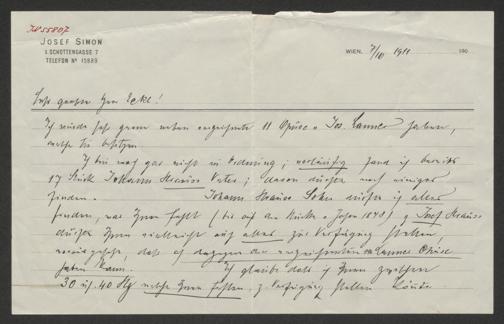 JN 55807
JOSEF SIMON
I. SCHOTTENGASSE 7
TELEFON Nº 15889
WIEN, 7/10 1911 190
Sehr geehrter Herr Eckl!
Ich würde sehr gerne neben angezeichnete 11 Opüse v. Jos. Lanner haben,
welche Sie besitzen.
Ich bin noch gar nicht in Ordnung; vorläufig fand ich bereits
17 Stück Johann Strauss Vater; davon dürften noch einige
finden. Johann Strauss Sohn dürfte ich alles
finden, was Ihnen fehlt, Josef Strauss
dürfte Ihnen vielleicht auf alles zur Verfügung stellen,
vorausgesetzt, dass ich dagegen die angezeichneten Lanner Opüse
haben kann. Ich glaube dass ich Ihnen zwischen
30 u. 40 Stg welche Ihnen fehlen, z. Verfügung stellen könnte